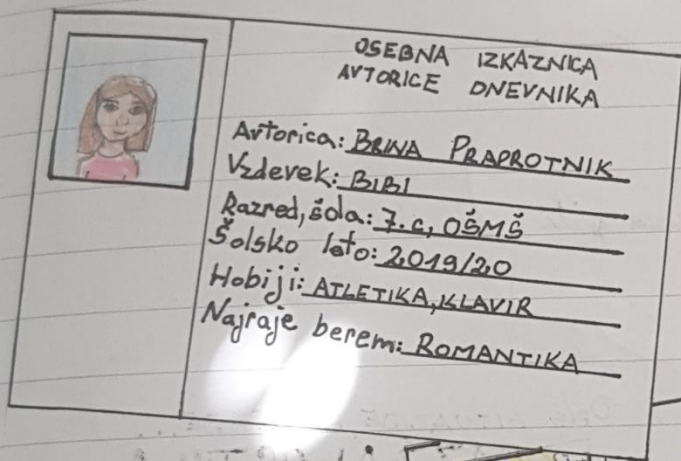 OSEBNA IZKAZNICA
AVTORICE DNEVNIKA
Avtorica: BRINA PRAPROTNIK
Vzdevek: BIBI
Razred, šola: 7. c, OŠMŠ
Šolsko leto: 2019/20
Hobiji: ATLETIKA, KLAVIR
Najraje berem: ROMANTIKA